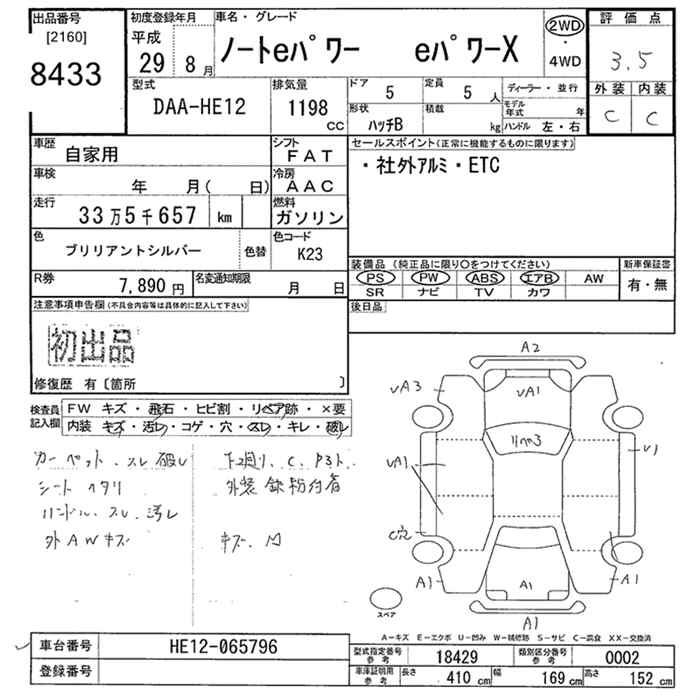 出品番号
[2160]
8433
初度登録年月
平成
29 8月
車名・グレード
ノートeパワー eパワーX
2WD
・
4WD
評価点
3.5
外装 内装
C C
型式
DAA-HE12
排気量
1198
CC
ドア
5
定員
5 人
形状
ハッチB
積載
kg
ディーラー・並行
モデル年式 年
ハンドル 左・右
車歴
自家用
シフト
FAT
車検
年 月( 日)
冷房
AAC
走行
33万5千657 km
燃料
ガソリン
色
ブリリアントシルバー
色替
色コード
K23
R券
7,890円
名変通知期限
月 日
セールスポイント(正常に機能するものに限ります)
・社外アルミ・ETC
装備品(純正品に限り○をつけてください)
PS PW ABS エアB AW
SR ナビ TV カワ
新車保証書
有・無
後日品
注意事項申告欄(不具合内容等は具体的に記入して下さい)
初出品
修復歴 有〔箇所 〕
検査員記入欄
FW キズ・飛石・ヒビ割・リペア跡・×要
内装 キズ・汚レ・コゲ・穴・スレ・キレ・破レ
カーペット、スレ破レ
シート ヘタリ
ハンドル、スレ、汚レ
外AWキズ
下廻り、C、
外装鉄粉付着
キズ、凹
A2
UA3
UA1
リペア3
U1
UA1
C穴
A1
A1
A1
A1
スペア
A-キズ E-エクボ U-凹み W-補修跡 S-サビ C-腐食 XX-交換済
車台番号
HE12-065796
登録番号
型式指定番号
参考
18429
類別区分番号
参考
0002
車庫証明用
参考
長さ
410 cm
幅
169 cm
高さ
152 cm